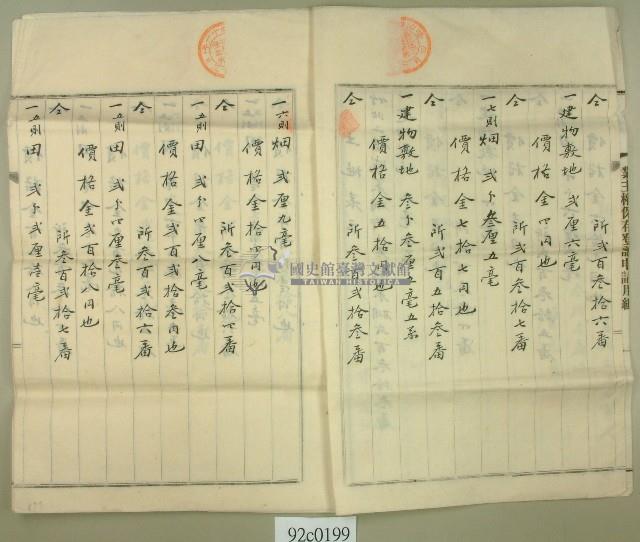 仝　所弐百叁拾六番
一建物敷地　弐厘六毫
価格金　円也
仝　所弐百叁拾七番
一七則畑　弐分叁厘五毫
価格金七拾七円也
仝　所弐百五拾叁番
一建物敷地　叁分叁厘　毫五糸
価格金五拾　円也
仝　所叁百弐拾叁番
一六則畑　弐厘九毫
価格金拾四円也
仝　所叁百弐拾四番
一五則田　弐分四厘八毫
価格金弐百弐拾叁円也
仝　所叁百弐拾六番
一五則田　弐分四厘叁毫
価格金弐百拾八円也
仝　所叁百弐拾七番
一五則田　弐分弐厘　毫
國史館臺灣文獻館
TAIWAN HISTORICA
92c0199